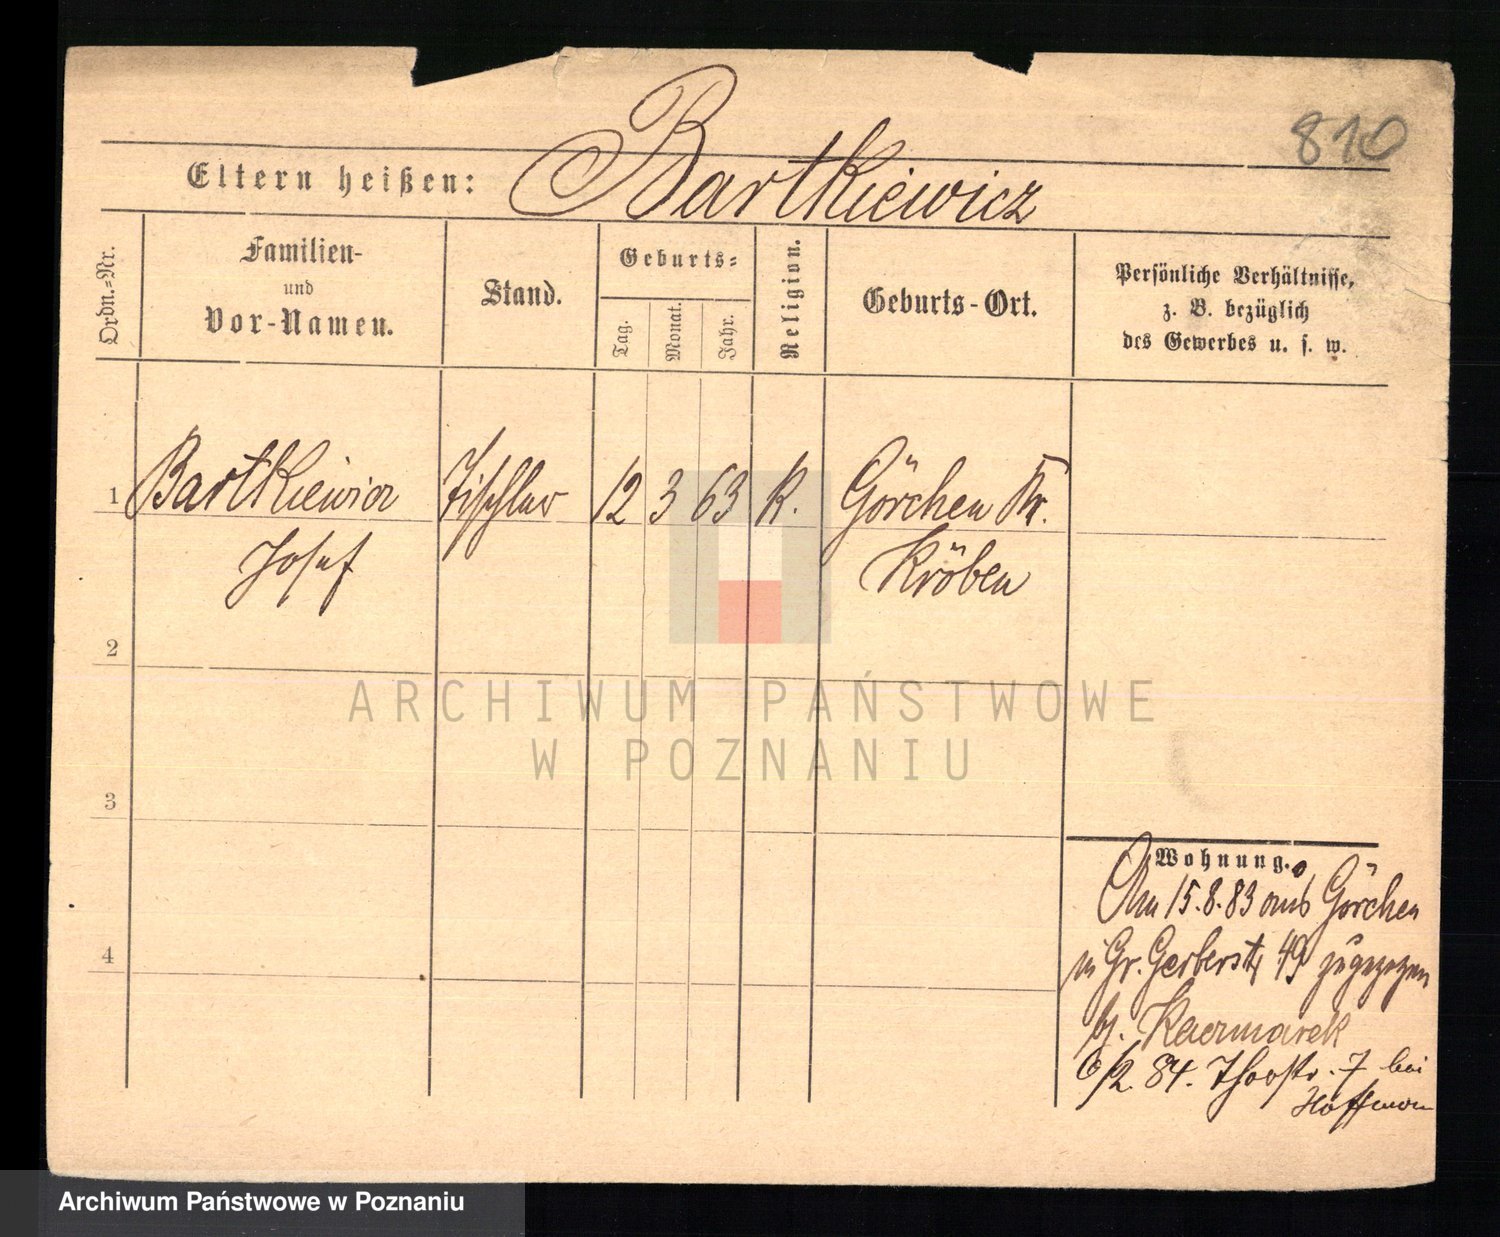 810
Eltern heißen: Bartkiewicz
Ordn.=Nr.
Familien-
und
Vor-Namen.
Stand.
Geburts=
Tag.
Monat.
Jahr.
Religion.
Geburts-Ort.
Persönliche Verhältnisse,
z. B. bezüglich
des Gewerbes u. s. w.
1 Bartkiewicz Tischler 12 3 63 K. Görchen Kr.
Josef Kröben
2
ARCHIWUM PAŃSTWOWE
W POZNANIU
3
Wohnung.
Am 15.8.83 aus Görchen
in Gr. Gerberstr 49 zugezogen
4
bj. Kaczmarek
6/2. 84. Thorstr. 7 bei
Hoffmann
Archiwum Państwowe w Poznaniu